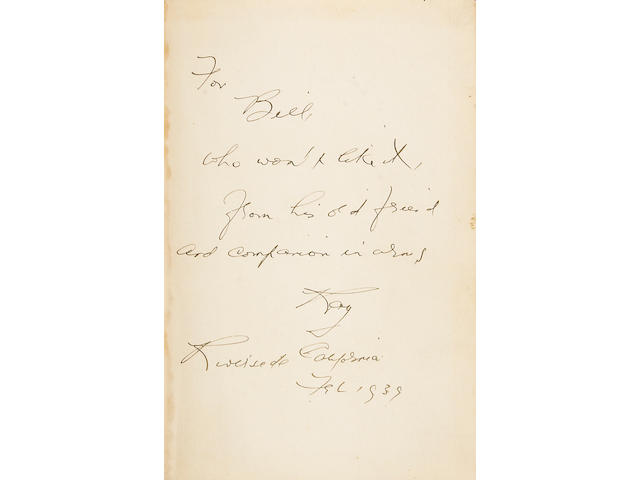 For
Bill,
who won't like it,
From his old friend
and companion in arms
Ray
Riverside California
Feb. 1939